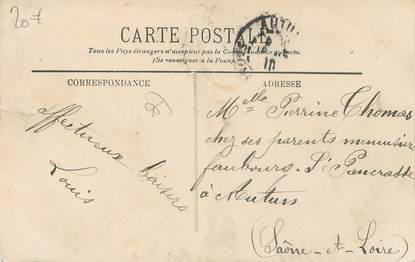 20f
CARTE POSTALE
Tous les Pays étrangers n'acceptent pas la Correspondance au recto.
(Se renseigner à la Poste).
CORRESPONDANCE
affectueux baisers
Louis
AUTUN
10
Melle Perrine Thomas
chez ses parents menuisier
faubourg St Pancrasse
à Autun
(Saône-et-Loire)